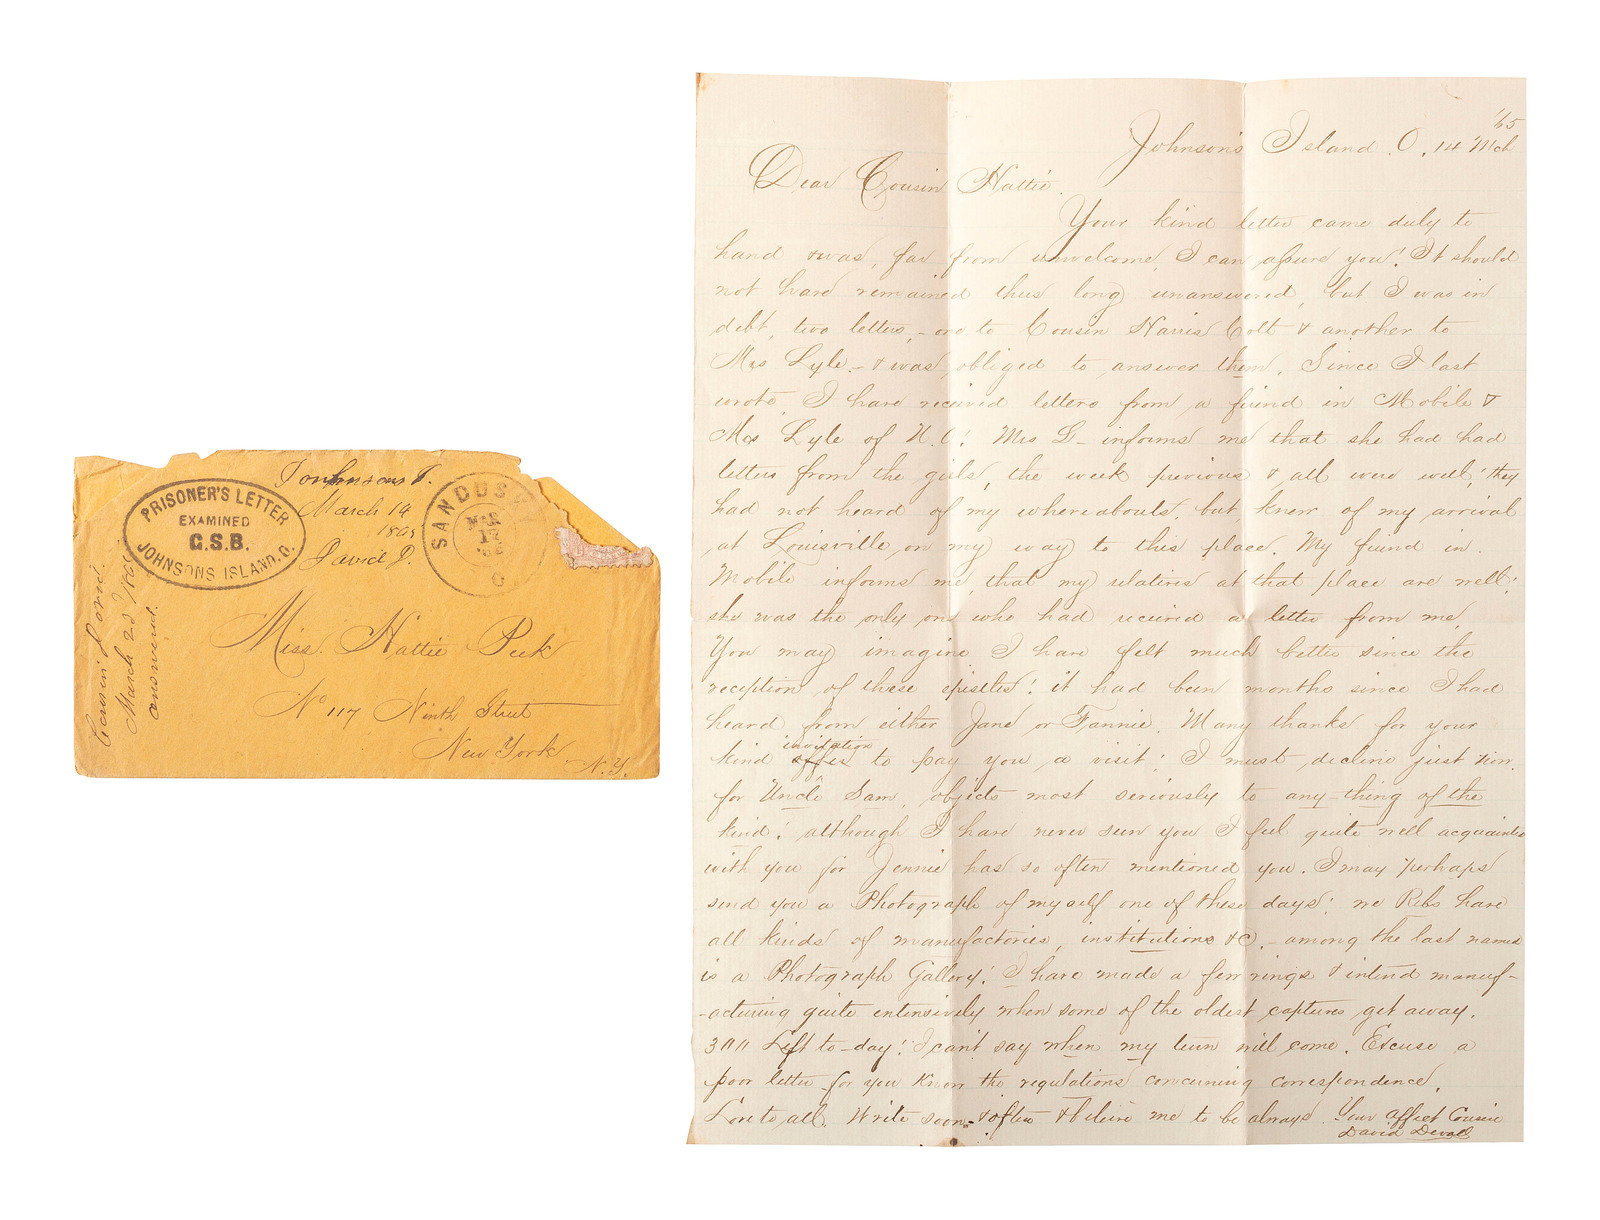 Johnsons I.
March 14
1865
David D.
PRISONER'S LETTER
EXAMINED
C.S.B.
JOHNSONS ISLAND.O.
SANDUSKY
MAR
17
O
Cousin David.
March 23 1865
answered.
Miss. Hattie Peek
No 117 Ninth Street
New York
N.Y.
'65
Johnson's Island. O. 14 Mch
Dear Cousin Hattie.
Your kind letter came duly to
hand & was, far from unwelcome, I can assure you! It should
not have remained thus long unanswered, but I was in
debt, two letters, - one to Cousin Harris Colt & another to
Mrs Lyle. - & was obliged to answer them. Since I last
wrote, I have received letters from a friend in Mobile &
Mrs Lyle of N.O! Mrs L - informs me that she had had
letters from the girls, the week previous & all were well; they
had not heard of my whereabouts, but knew of my arrival
at Louisville, on my way to this place. My friend in.
Mobile informs me, that my relatives at that place are well;
she was the only one who had received a letter from me.
You may imagine I have felt much better since the
reception of these epistles! it had been months since I had
heard from either Jane or Fannie. Many thanks for your
kind offer invitation to pay you a visit; I must decline just now.
for Uncle Sam, objects most seriously to any-thing of the
kind! although I have never seen you I feel quite well acquainted
with you for Jennie has so often mentioned you. I may perhaps
send you a Photograph of myself one of these days; we Rebs have
all kinds of manufactories, institutions &C. - among the last named
is a Photograph Gallery! I have made a few rings & intend manuf-
-acturing quite extensively when some of the oldest captures get away.
300 Left to-day! I can't say when my turn will come. Excuse a
poor letter for you know the regulations concerning correspondence.
Love to all. Write soon & often & believe me to be always. Your affect Cousin
David Deval